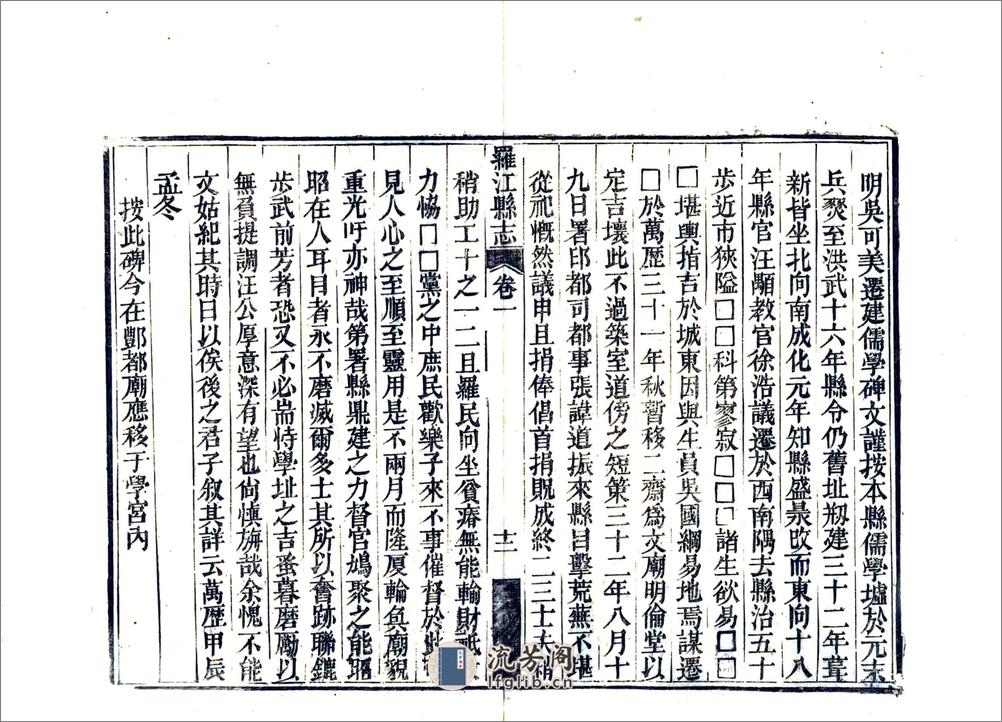 明吳可美遷建儒學碑文謹按本縣儒學墟於元末
兵燹至洪武十六年縣令仍舊址刱建三十二年葺
新皆坐北向南成化元年知縣盛㫤改而東向十八
年縣官汪顒教官徐浩議遷於西南隅去縣治五十
步近市狹隘□□科第寥寂□□□諸生欲易□□
□堪輿指吉於城東因與生員吳國綱易地焉謀遷
□於萬歷三十一年秋暫移二齋爲文廟明倫堂以
定吉壤此不過築室道傍之短策三十二年八月十
九日署印都司都事張諱道振來縣目擊荒蕪不堪
從祀慨然議申且捐俸倡首捐貺成終二三士夫稍
羅江縣志
卷一
十二
稍助工十之一二且羅民向坐貧瘠無能輸財祇
力恊□□黨之中庶民歡樂子來不事催督於此
見人心之至順至靈用是不兩月而隆厦輪奐廟貌
重光吁亦神哉第署縣鼎建之力督官鳩聚之能昭
昭在人耳目者永不磨滅爾多士其所以奮跡聯鑣
步武前芳者恐又不必耑恃學址之吉蚤暮磨勵以
無負提調汪公厚意深有望也尚慎旃哉余愧不能
文姑紀其時日以俟後之君子敘其詳云萬歷甲辰
孟冬
按此碑今在酆都廟應移于學宮內
流芳閣
lfglib.cn